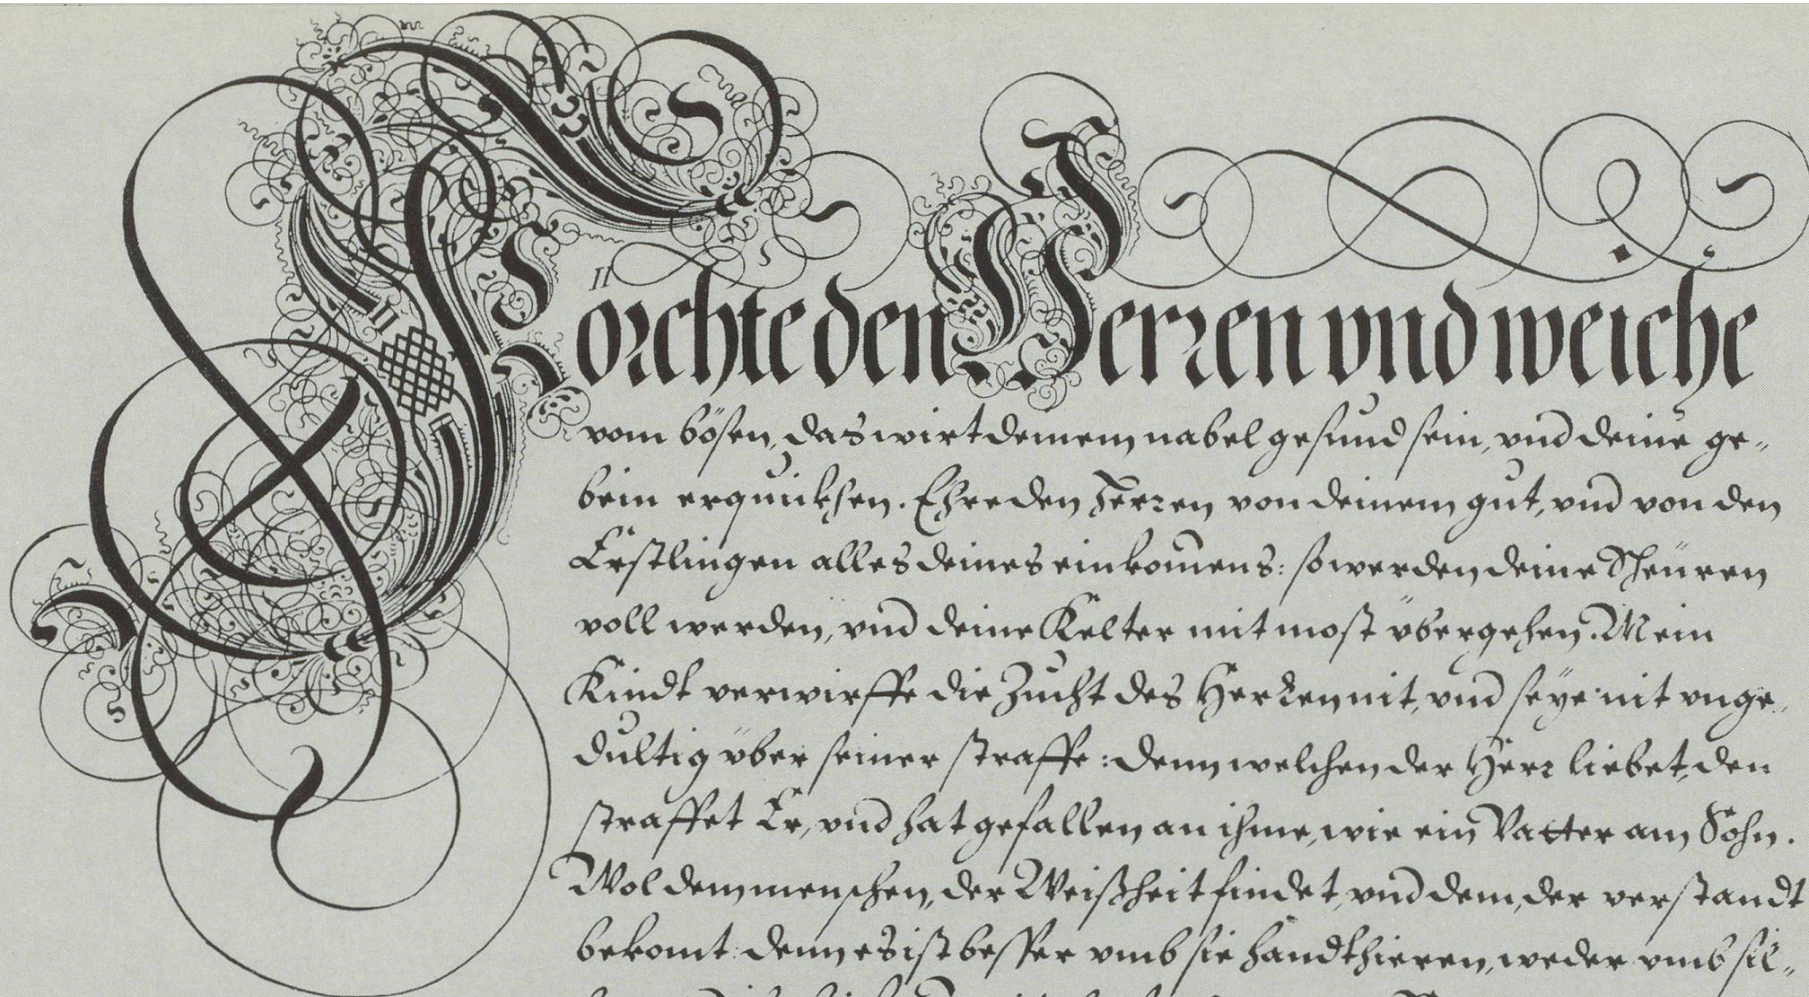 Förchte den Herren vnd weiche
vom bösen, das wirt deinem nabel gesund sein, vnd deine ge-
bein erquickhen. Ehre den Herren von deinem gut, vnd von den
Erstlingen alles deines einkomens: so werden deine Scheüren
voll werden, vnd deine Kelter mit most übergehen. Mein
Kindt verwirffe die Zucht des Herren nit, vnd seye nit vnge-
dultig über seiner straffe: denn welchen der Herr liebet, den
straffet Er, vnd hat gefallen an ihme, wie ein Vatter am Sohn.
Wol dem menschen, der Weißheit findet, vnd dem, der verstandt
bekomt: denn es ist besser vmb sie handthieren, weder vmb sil-